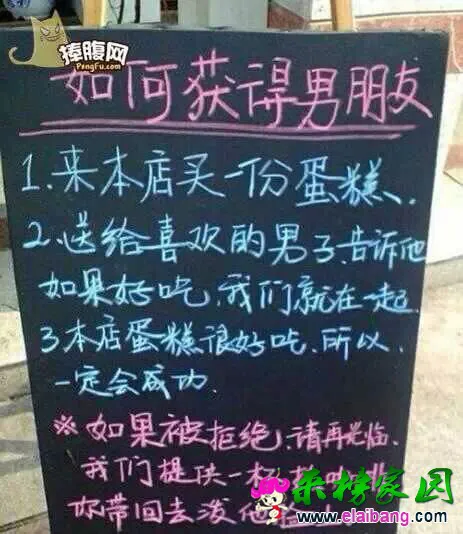 捧腹网
PengFu.com
如何获得男朋友
1.来本店买一份蛋糕、
2.送给喜欢的男子、告诉他
如果好吃、我们就在一起.
3本店蛋糕很好吃、所以、
一定会成功.
※如果被拒绝、请再光临、
我们提供一杯
你带回去泼他
来榜家园
www.elaibang.com